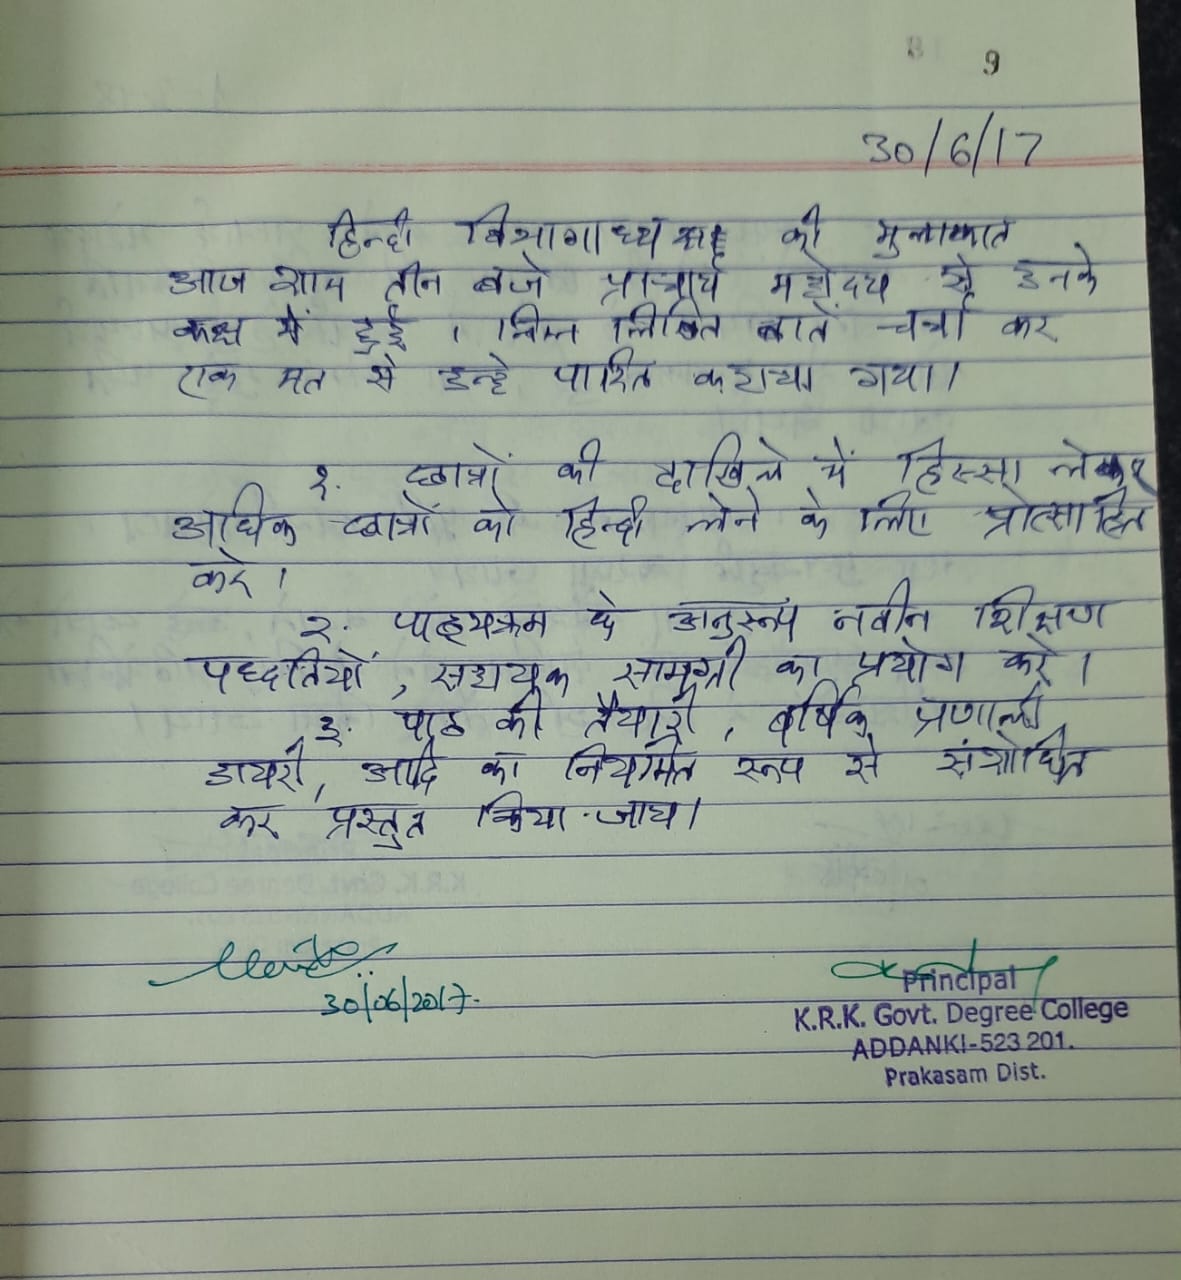 9
30/6/17
हिन्दी विभागाध्यक्ष की मुलाकात
आज शाम तीन बजे प्राचार्य महोदय से उनके
कक्ष में हुई । निम्न लिखित बातें चर्चा कर
एक मत से इन्हे पारित कराया गया।
१. छात्रों की दाखिले में हिस्सा लेकर
अधिक छात्रों को हिन्दी लेने के लिए प्रोत्साहित
करे ।
२. पाठ्यक्रम के अनुरूप नवीन शिक्षण
पद्धतियों, सहायक सामग्री का प्रयोग करे ।
३. पाठ की तैयारी, वर्षिक प्रणाली
डायरी, आदि का नियमित रूप से संशोधित
कर प्रस्तुत किया जाय।
30/06/2017.
Principal
K.R.K. Govt. Degree College
ADDANKI-523 201.
Prakasam Dist.